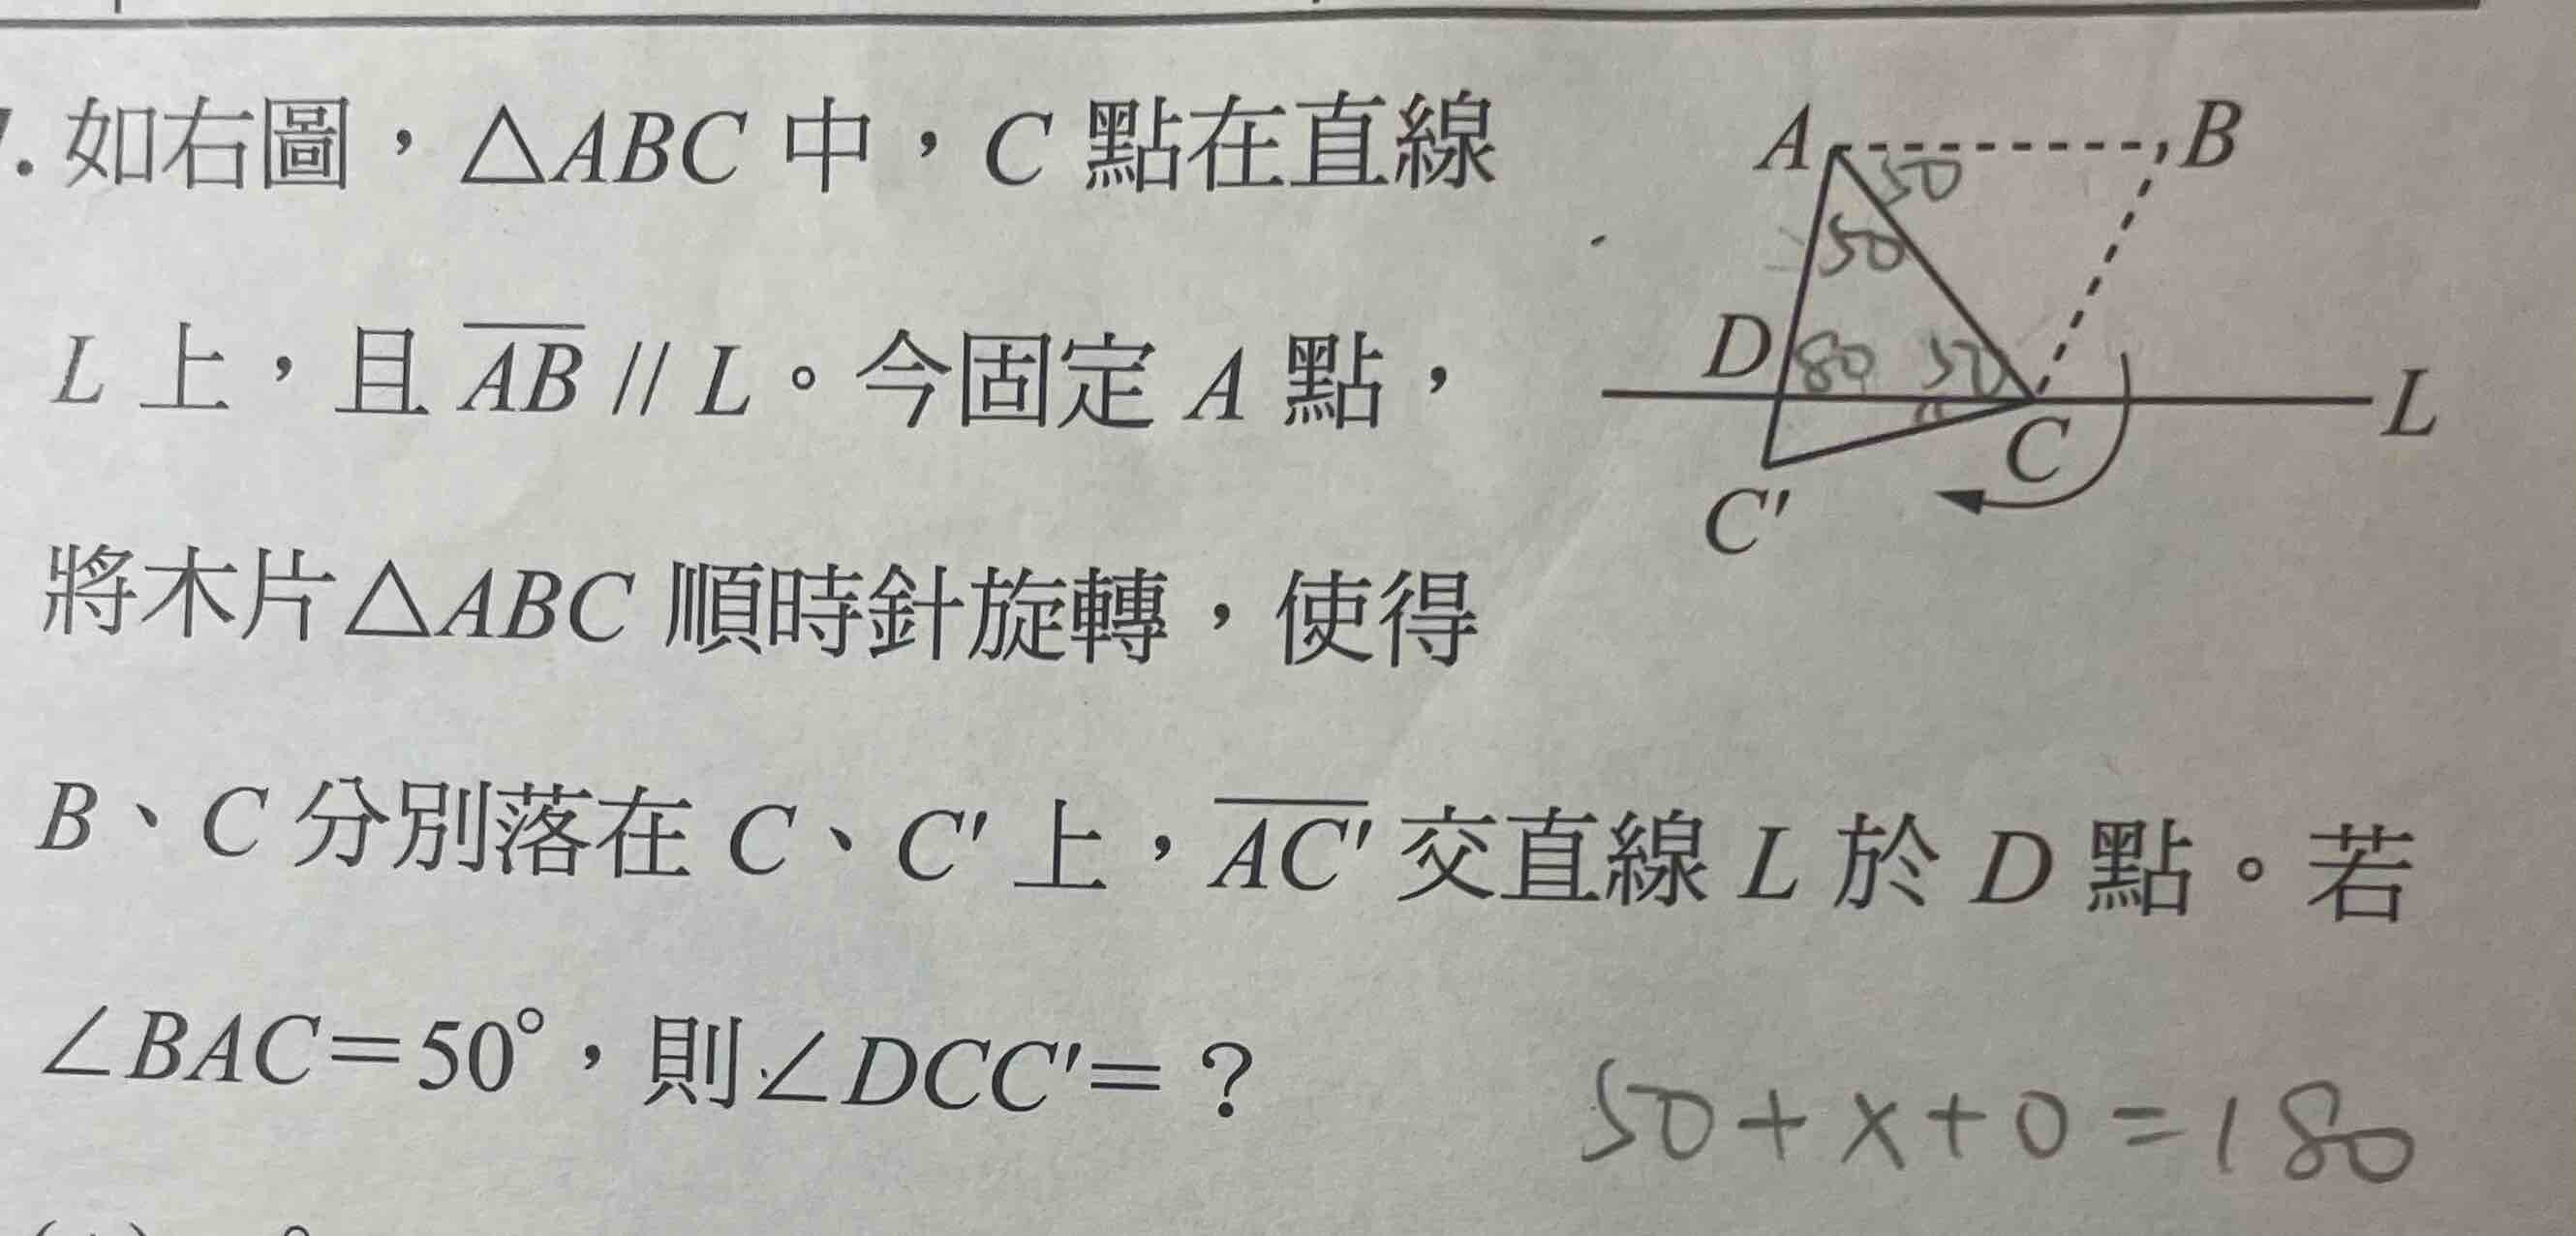 . 如右圖，△ABC 中，C 點在直線
L 上，且 AB // L。今固定 A 點，
將木片△ABC 順時針旋轉，使得
B、C 分別落在 C、C' 上，AC' 交直線 L 於 D 點。若
∠BAC=50°，則∠DCC'=？
A
B
50
50
D
80
50
L
C
C'
50+x+0=180